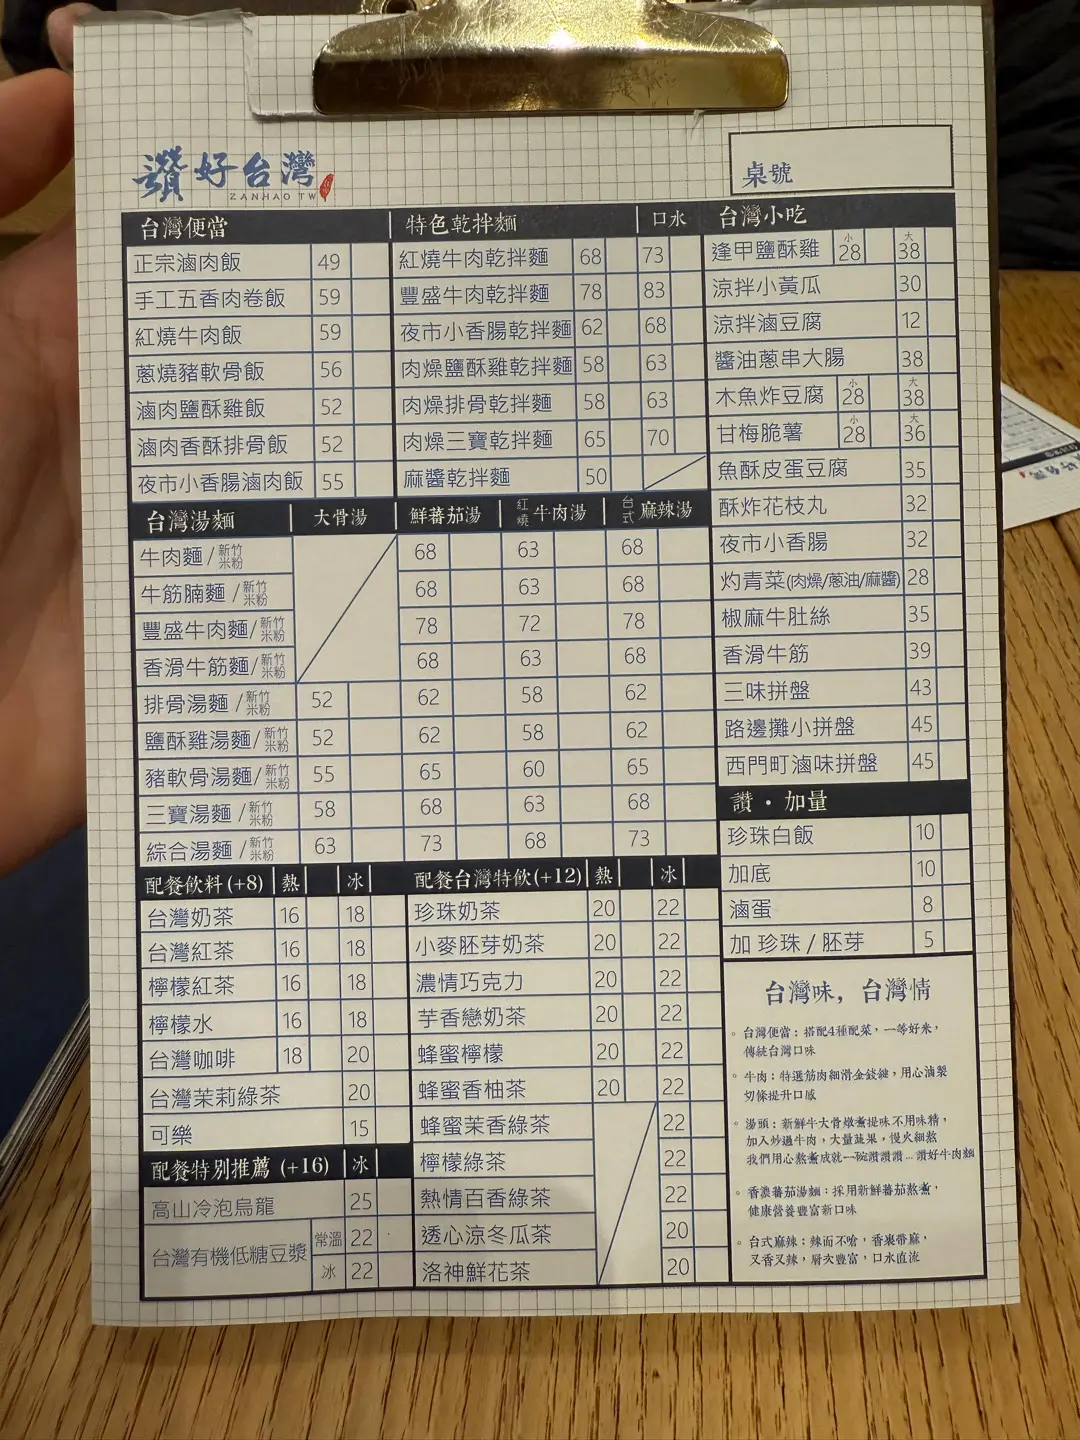 讚好台灣
ZANHAO TW
桌號
台灣便當
正宗滷肉飯 49
手工五香肉卷飯 59
紅燒牛肉飯 59
蔥燒豬軟骨飯 56
滷肉鹽酥雞飯 52
滷肉香酥排骨飯 52
夜市小香腸滷肉飯 55
特色乾拌麵 口水
紅燒牛肉乾拌麵 68 73
豐盛牛肉乾拌麵 78 83
夜市小香腸乾拌麵 62 68
肉燥鹽酥雞乾拌麵 58 63
肉燥排骨乾拌麵 58 63
肉燥三寶乾拌麵 65 70
麻醬乾拌麵 50
台灣小吃
逢甲鹽酥雞 小 28 大 38
涼拌小黃瓜 30
涼拌滷豆腐 12
醬油蔥串大腸 38
木魚炸豆腐 小 28 大 38
甘梅脆薯 小 28 大 36
魚酥皮蛋豆腐 35
酥炸花枝丸 32
夜市小香腸 32
灼青菜(肉燥/蔥油/麻醬) 28
椒麻牛肚絲 35
香滑牛筋 39
三味拼盤 43
路邊攤小拼盤 45
西門町滷味拼盤 45
台灣湯麵 大骨湯 鮮蕃茄湯 紅燒牛肉湯 台式麻辣湯
牛肉麵/新竹米粉 68 63 68
牛筋腩麵/新竹米粉 68 63 68
豐盛牛肉麵/新竹米粉 78 72 78
香滑牛筋麵/新竹米粉 68 63 68
排骨湯麵/新竹米粉 52 62 58 62
鹽酥雞湯麵/新竹米粉 52 62 58 62
豬軟骨湯麵/新竹米粉 55 65 60 65
三寶湯麵/新竹米粉 58 68 63 68
綜合湯麵/新竹米粉 63 73 68 73
讚・加量
珍珠白飯 10
加底 10
滷蛋 8
加 珍珠 / 胚芽 5
配餐飲料(+8) 熱 冰
台灣奶茶 16 18
台灣紅茶 16 18
檸檬紅茶 16 18
檸檬水 16 18
台灣咖啡 18 20
台灣茉莉綠茶 20
可樂 15
配餐特別推薦 (+16) 冰
高山冷泡烏龍 25
台灣有機低糖豆漿 常溫 22
冰 22
配餐台灣特飲(+12) 熱 冰
珍珠奶茶 20 22
小麥胚芽奶茶 20 22
濃情巧克力 20 22
芋香戀奶茶 20 22
蜂蜜檸檬 20 22
蜂蜜香柚茶 20 22
蜂蜜茉香綠茶 22
檸檬綠茶 22
熱情百香綠茶 22
透心涼冬瓜茶 20
洛神鮮花茶 20
台灣味，台灣情
。台灣便當：搭配4種配菜，一等好米，
傳統台灣口味
。牛肉：特選筋肉細滑金錢腱，用心滷製
切條提升口感
。湯頭：新鮮牛大骨燉煮提味不用味精，
加入炒過牛肉，大量蔬果，慢火細熬
我們用心熬煮成就一碗讚讚讚...讚好牛肉麵
。香濃蕃茄湯麵：採用新鮮蕃茄熬煮，
健康營養豐富新口味
。台式麻辣：辣而不嗆，香裏帶麻，
又香又辣，層次豐富，口水直流